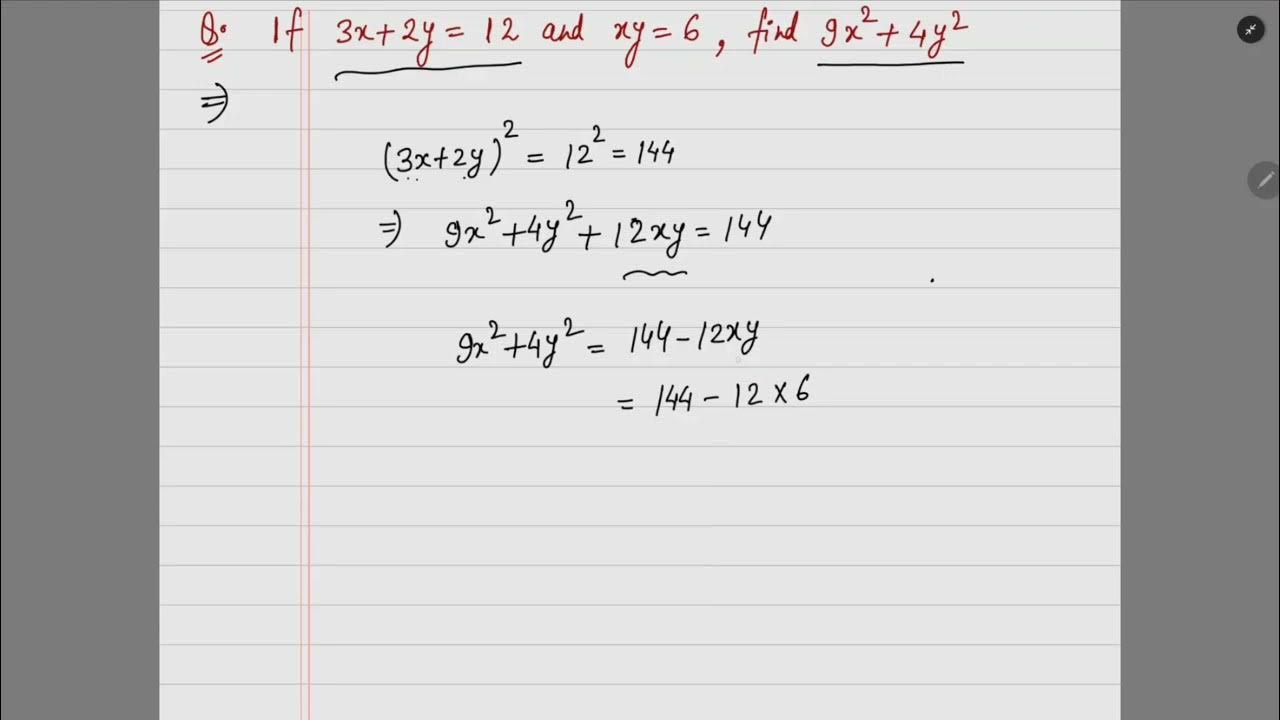 Q. If 3x+2y = 12 and xy = 6, find 9x²+4y²
⇒
(3x+2y)² = 12² = 144
⇒ 9x²+4y²+12xy = 144
9x²+4y² = 144-12xy
= 144 - 12 × 6